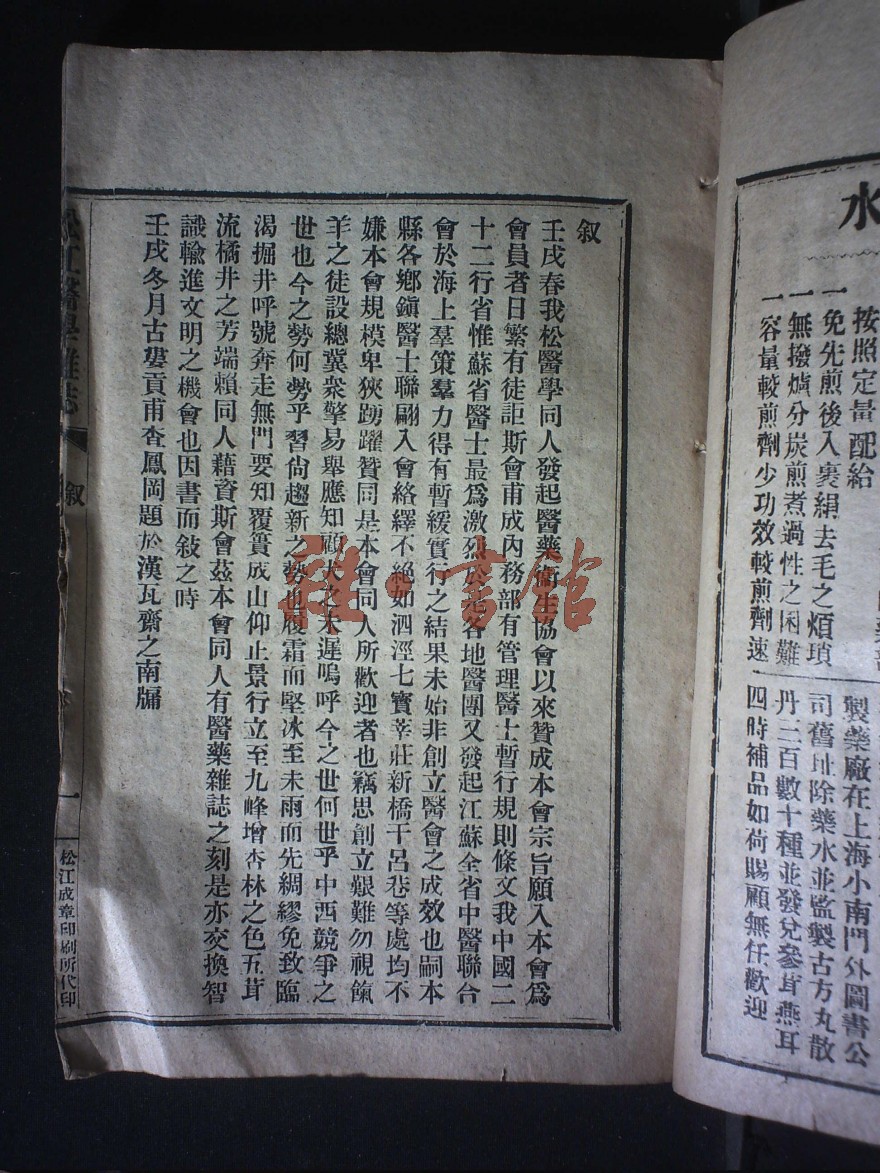 叙
壬戌春我松醫學同人發起醫藥衛生協會以來贊成本會宗旨願入本會爲
會員者日繁有徒詎斯會甫成內務部有管理醫士暫行規則條文我中國二
十二行省惟蘇省醫士最爲激烈於是各地醫團又發起江蘇全省中醫聯合
會於海上羣策羣力得有暫緩實行之結果未始非創立醫會之成效也嗣本
縣各鄉鎭醫士聯翩入會絡繹不絕如泗涇七寶莘莊新橋干呂巷等處均不
嫌本會規模卑狹踴躍贊同是本會同人所歡迎者也竊思創立艱難勿視餼
羊之徒設總冀衆擎易舉應知顧犬之未遲嗚呼今之世何世乎中西競爭之
世也今之勢何勢乎習尙趨新之勢也履霜而堅冰至未雨而先綢繆免致臨
渴掘井呼號奔走無門要知覆簣成山仰止景行立至九峰增杏林之色五茸
流橘井之芳端賴同人藉資斯會茲本會同人有醫藥雜誌之刻是亦交換智
識輸進文明之機會也因書而敍之時
壬戌冬月古婁貢甫查鳳岡題於漢瓦齋之南牖
松江醫學雜誌
叙
一
松江成章印刷所代印
雅書館
水
按照定量配給
一免先煎後入裹絹去毛之煩瑣
一無撥爐分炭煎煮過性之困難
一容量較煎劑少功效較煎劑速
製藥廠在上海小南門外圖書公
司舊址除藥水並監製古方丸散
丹三百數十種並發兌參茸燕耳
四時補品如荷賜顧無任歡迎